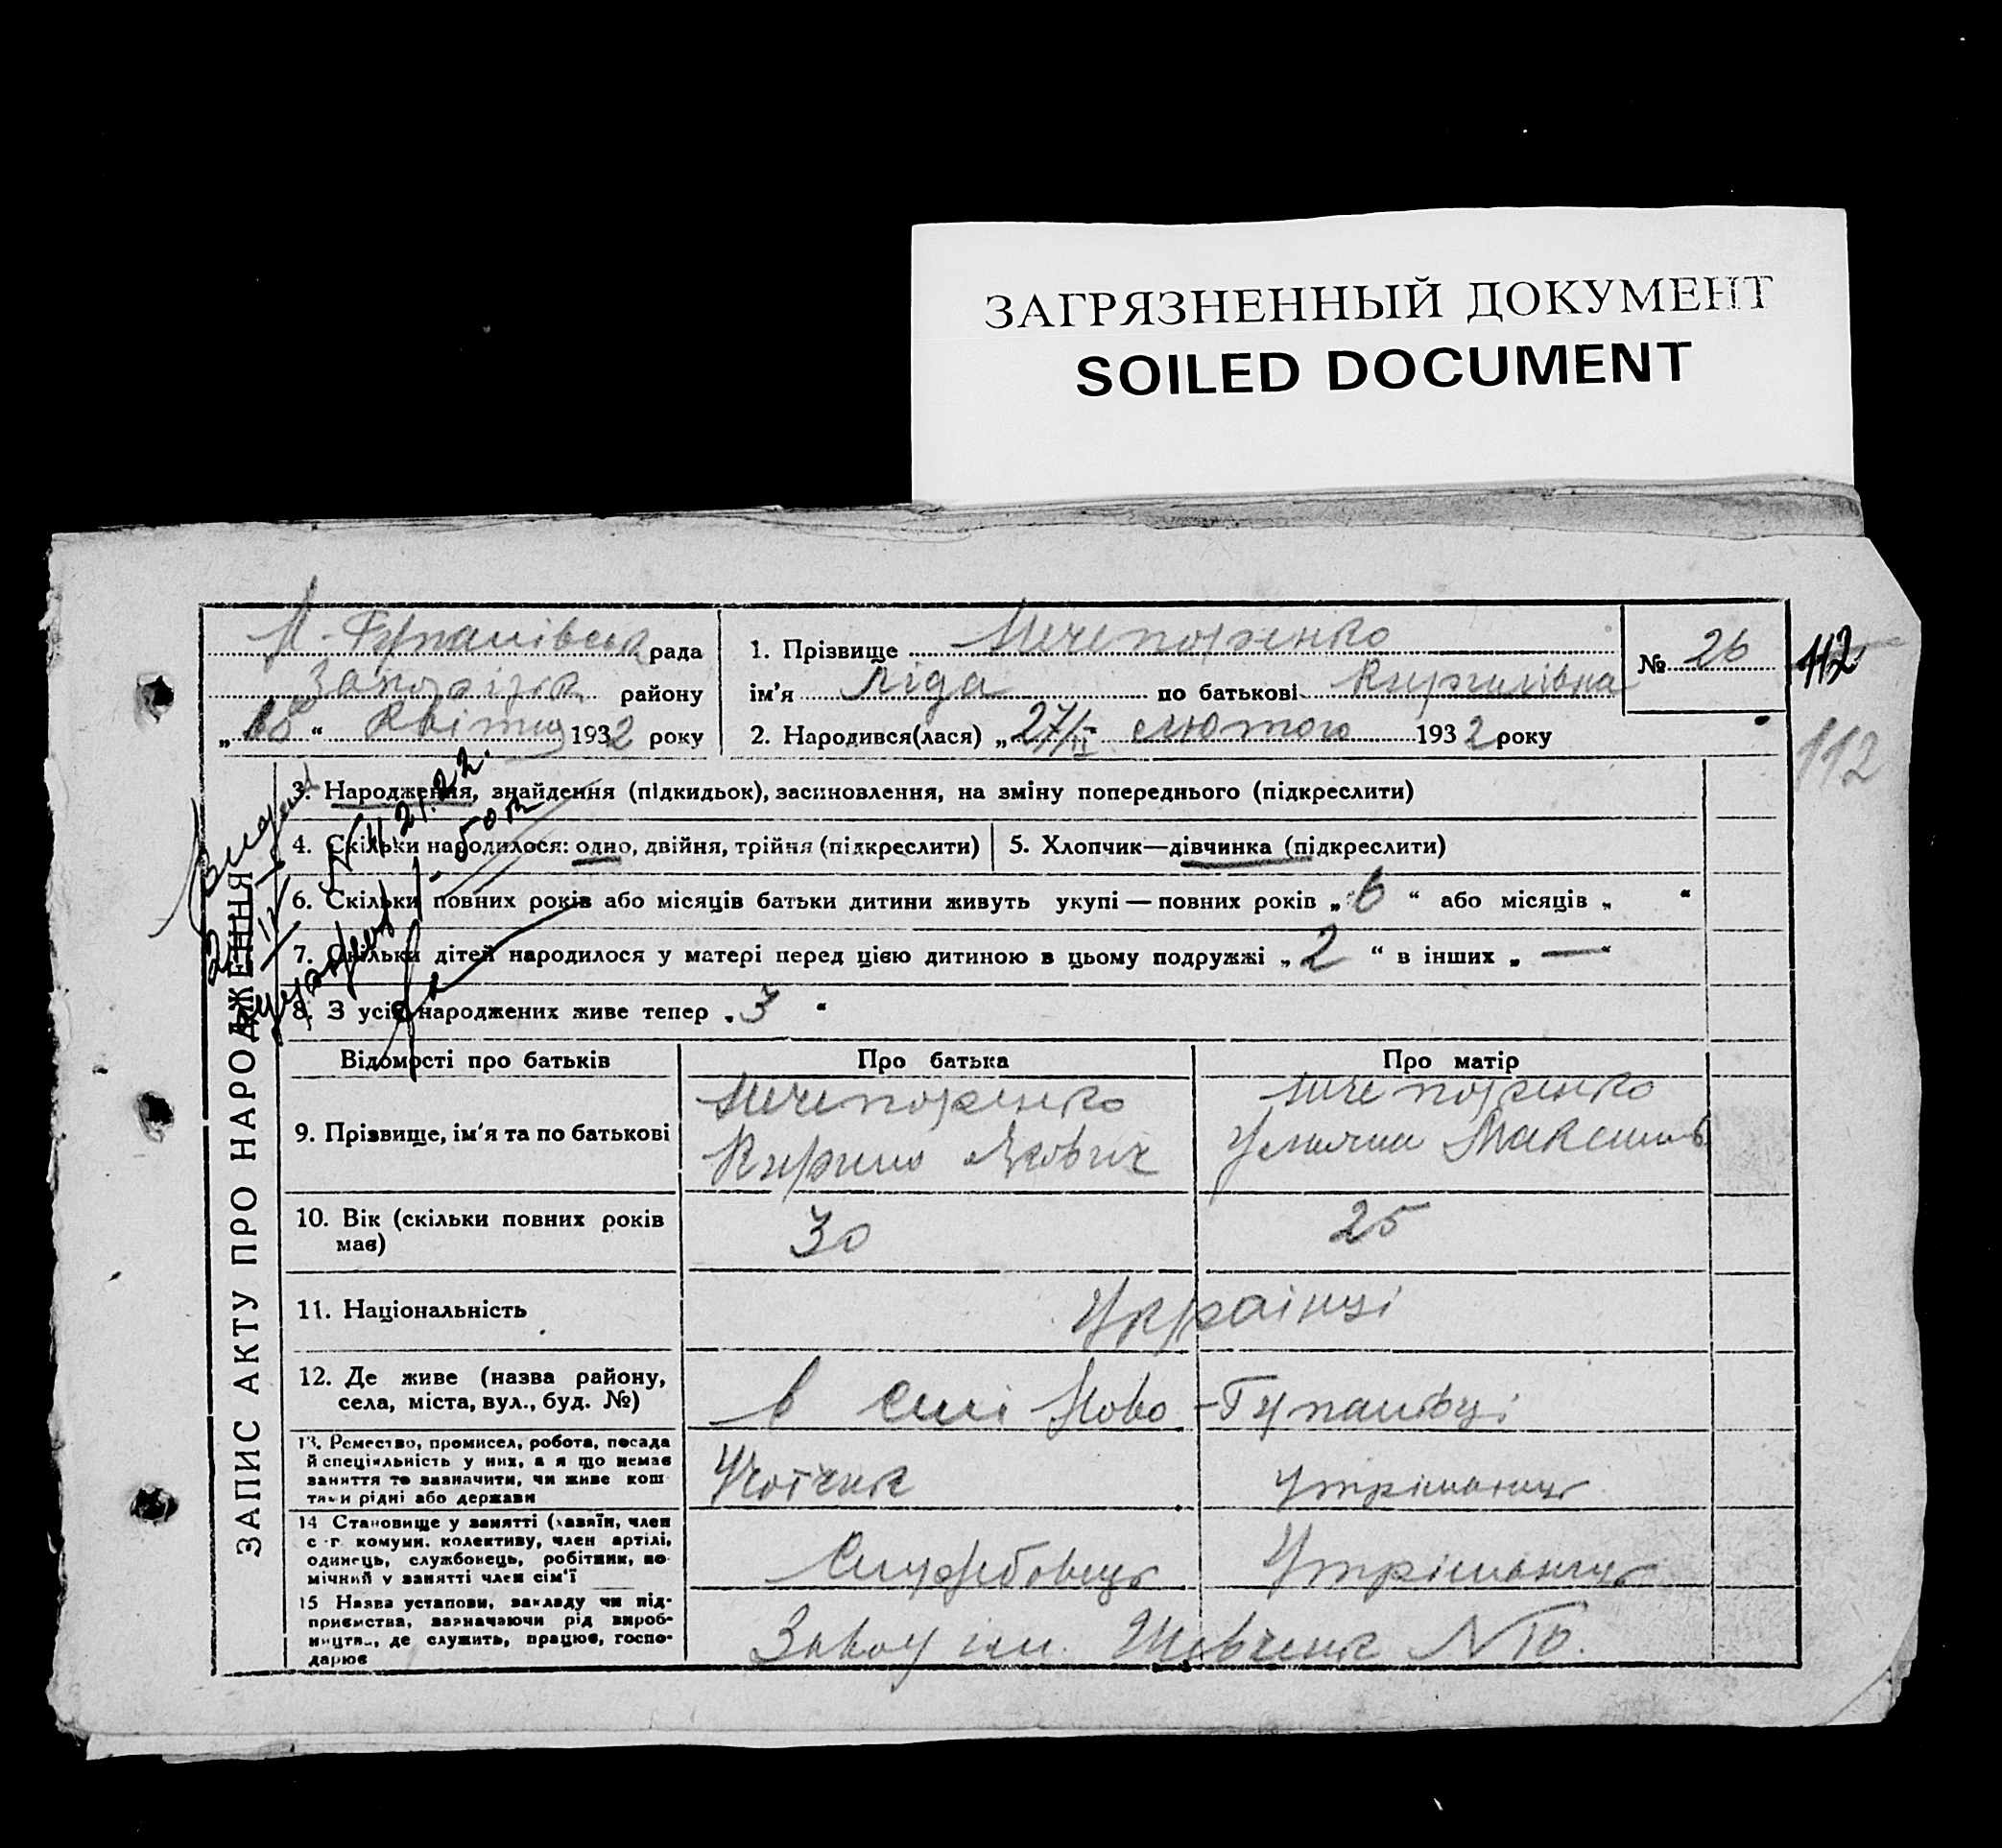 ЗАГРЯЗНЕННЫЙ ДОКУМЕНТ
SOILED DOCUMENT
рада
району
" квітня 1932 року
1. Прізвище Ничепоренко
ім'я Ліда по батькові Кирилівна
2. Народився(лася) „27/II лютого 1932 року
№ 26
112
112
ЗАПИС АКТУ ПРО НАРОДЖЕННЯ
3. Народження, знайдення (підкидьок), засиновлення, на зміну попереднього (підкреслити)
4. Скільки народилося: одно, двійня, трійня (підкреслити)
5. Хлопчик—дівчинка (підкреслити)
6. Скільки повних років або місяців батьки дитини живуть укупі — повних років „6“ або місяців „ “
7. Скільки дітей народилося у матері перед цією дитиною в цьому подружжі „2“ в інших „—“
8. З усіх народжених живе тепер „3“
Відомості про батьків
Про батька
Про матір
9. Прізвище, ім'я та по батькові
Ничепоренко
Кирило Якович
Ничепоренко
Максимів
10. Вік (скільки повних років має)
30
25
11. Національність
Українці
12. Де живе (назва району,
села, міста, вул., буд. №)
в селі Ново-Гупалівці
13. Ремество, промисел, робота, посада
й спеціяльність у них, а якщо немає
заняття то зазначити, чи живе кош
тами рідні або держави
Учотчик
Утріманиця
14 Становище у занятті (хазяїн, член
с-г комуни, колективу, член артілі,
одинець, службовець, робітник, по-
мічний у занятті член сім'ї
Службовець
Утріманиця
15 Назва установи, закладу чи під-
приємства, зазначаючи рід вироб-
ництва, де служить, працює, госпо-
дарює
Завод ім. Шевченк